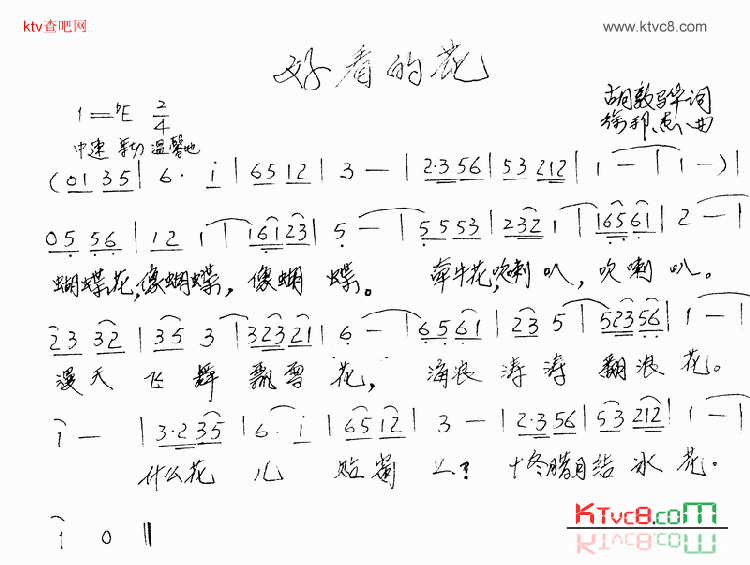 ktv查吧网
www.ktvc8.com
好看的花
1=♭E 2/4
胡敦骅词
徐邦杰曲
中速 亲切 温馨地
(01 35 | 6· i | 65 12 | 3 — | 2·3 56 | 53 212 | 1 — | 1 —) |
05 56 | 12 1 | 161 23 | 5 — | 55 53 | 232 1 | 165 61 | 2 — |
蝴蝶花,像蝴蝶,像蝴蝶。牵牛花,吹喇叭,吹喇叭。
23 32 | 35 3 | 323 21 | 6 — | 65 61 | 23 5 | 523 56 | 1 — |
漫天飞舞飘雪花,海浪涛涛翻浪花。
1 — | 3·2 35 | 6· i | 65 12 | 3 — | 2·3 56 | 53 212 | 1 — |
什么花儿贴窗上?十冬腊月结冰花。
KTvc8.com
1 0 ‖